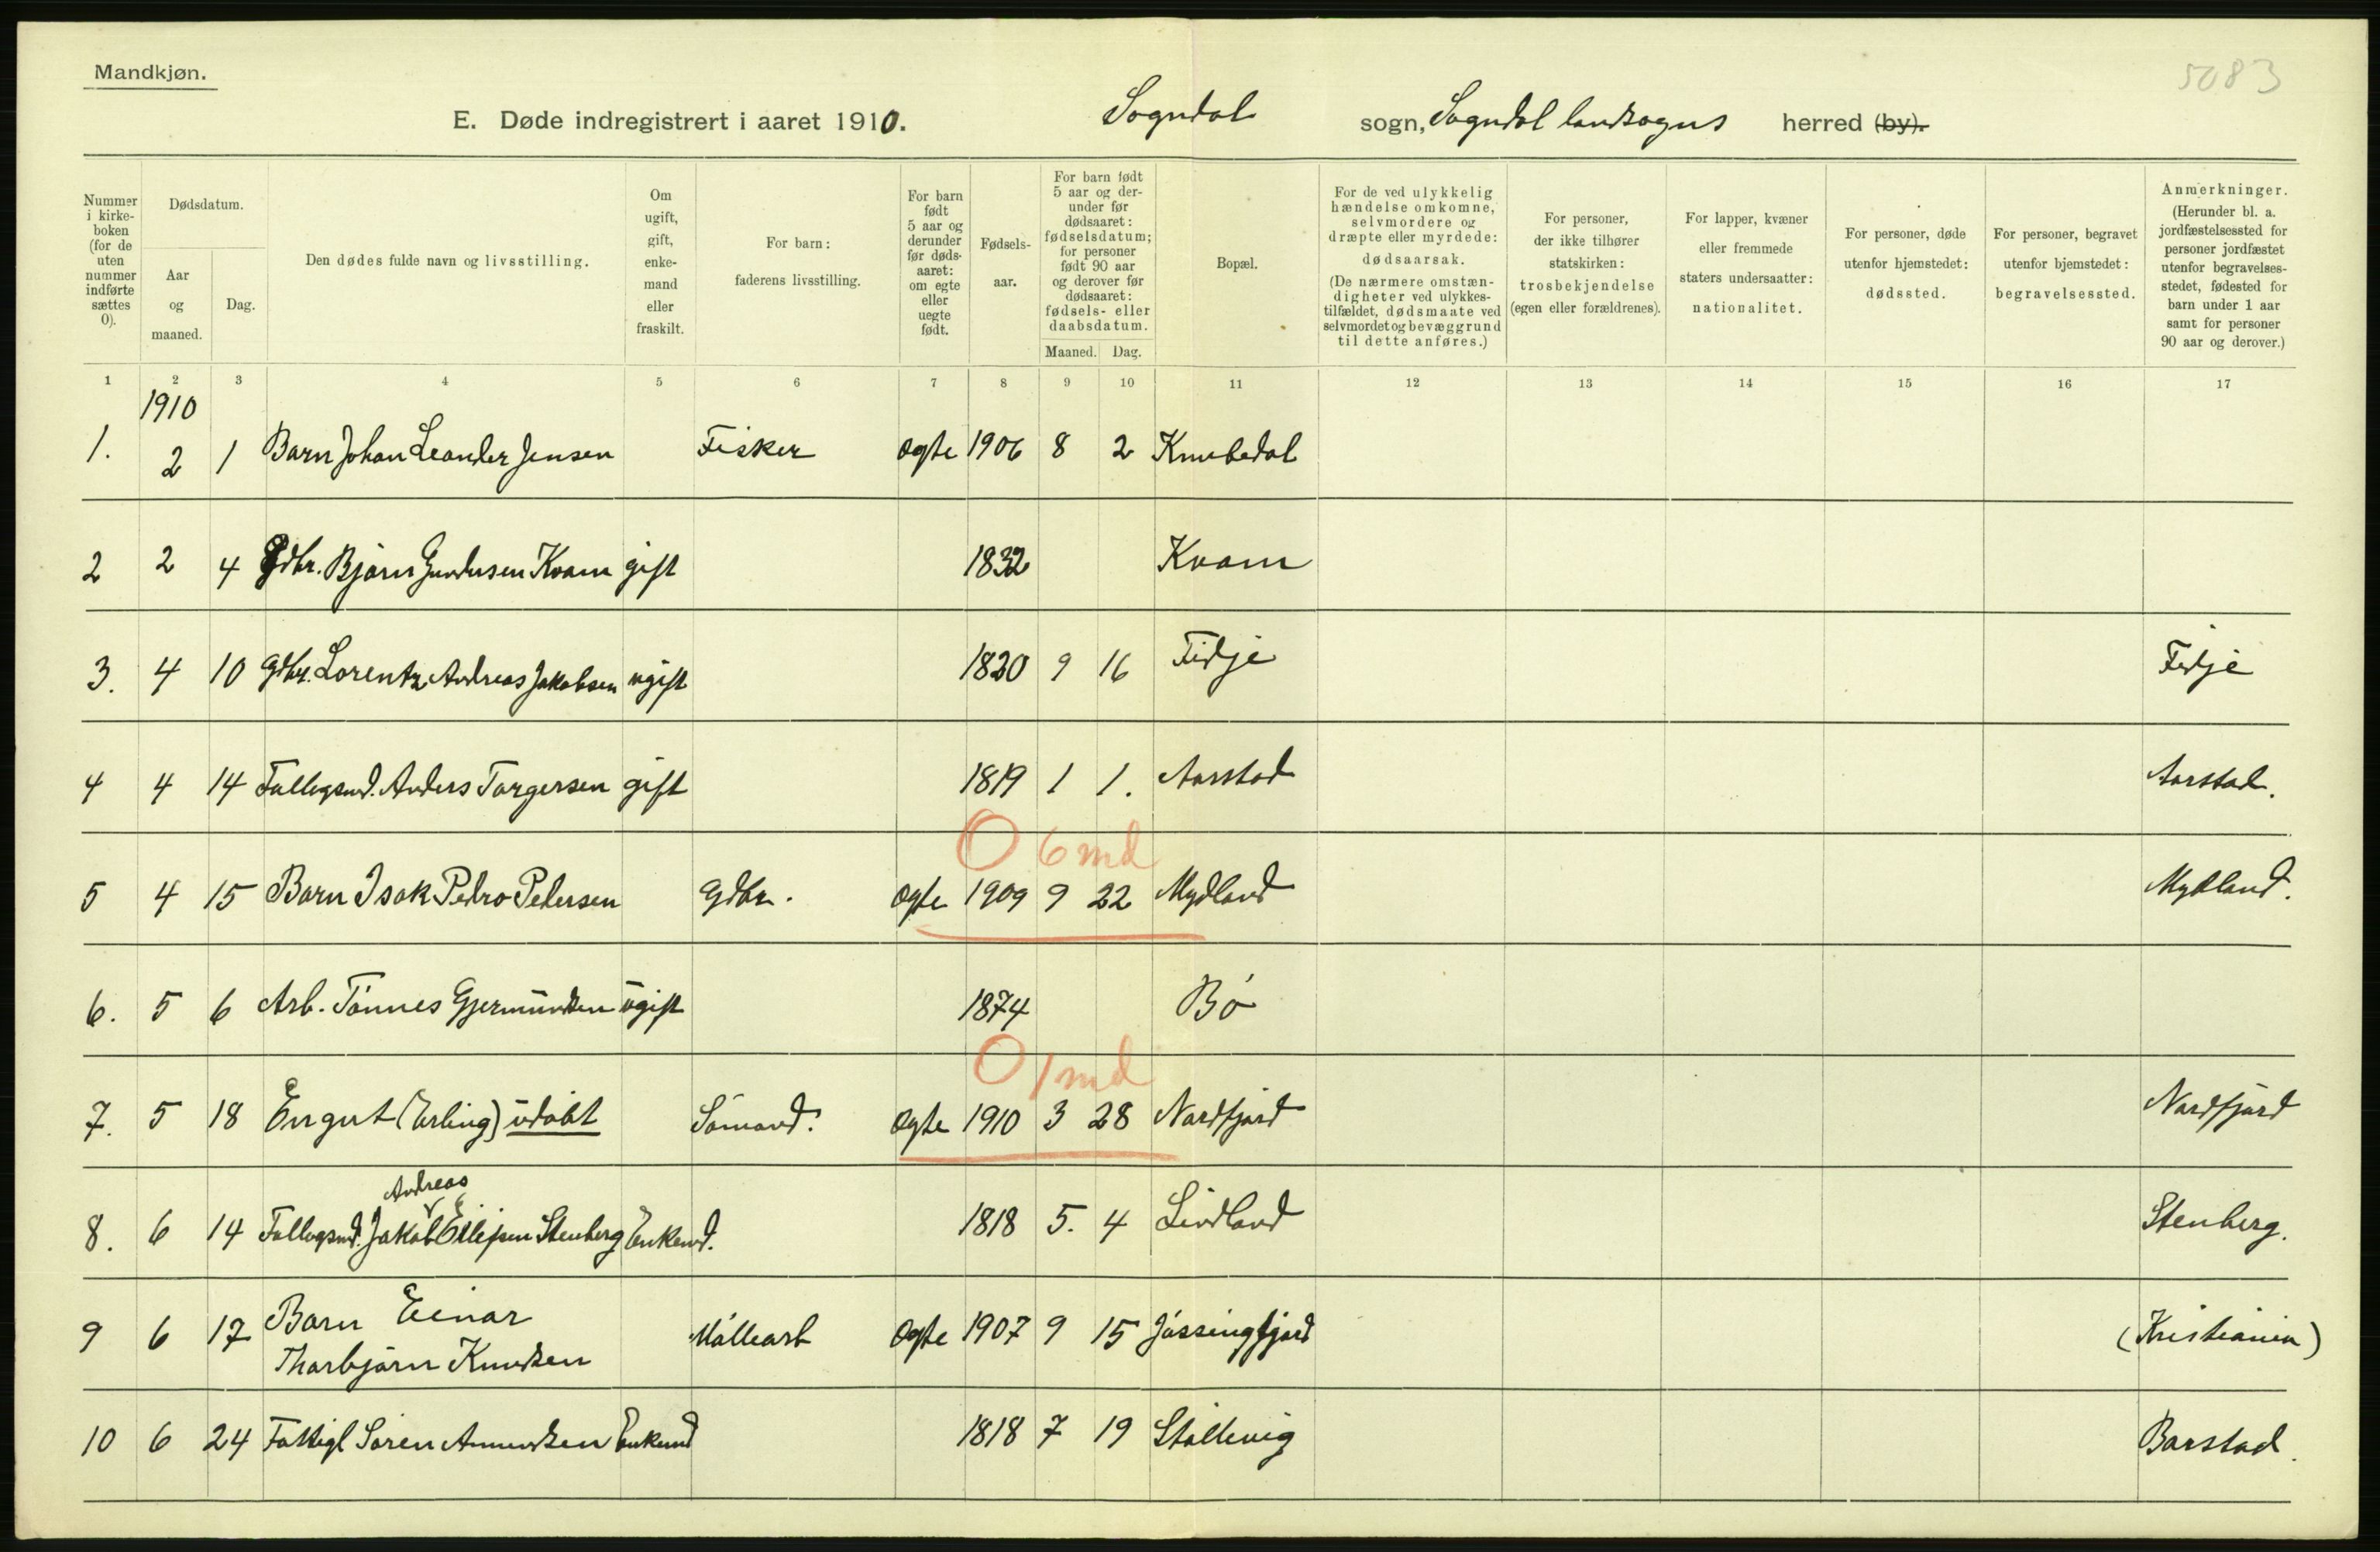 Mandkjøn.
5083
E. Døde indregistrert i aaret 1910. Sogndal sogn, Sogndal landsogns herred (by).
Nummer i kirke-boken (for de uten nummer indførte sættes 0).
Dødsdatum.
Aar og maaned.
Dag.
Den dødes fulde navn og livsstilling.
Om ugift, gift, enke-mand eller fraskilt.
For barn: faderens livsstilling.
For barn født 5 aar og derunder før døds-aaret: om egte eller uegte født.
Fødsels-aar.
For barn født 5 aar og der-under før dødsaaret: fødselsdatum; for personer født 90 aar og derover før dødsaaret: fødsels- eller daabsdatum.
Maaned. Dag.
Bopæl.
For de ved ulykkelig hændelse omkomne, selvmordere og dræpte eller myrdede: dødsaarsak.
(De nærmere omstæn-digheter ved ulykkes-tilfældet, dødsmaate ved selvmordet og bevæggrund til dette anføres.)
For personer, der ikke tilhører statskirken: trosbekjendelse (egen eller forældrenes).
For lapper, kvæner eller fremmede staters undersaatter: nationalitet.
For personer, døde utenfor hjemstedet: dødssted.
For personer, begravet utenfor bjemstedet: begravelsessted.
Anmerkninger.
(Herunder bl. a. jordfæstelsessted for personer jordfæstet utenfor begravelses-stedet, fødested for barn under 1 aar samt for personer 90 aar og derover.)
1 2 3 4 5 6 7 8 9 10 11 12 13 14 15 16 17
1910
1. 2 1 Barn Johan Leander Jensen Fisker Ogte 1906 8 2 Knubedal
2 2 4 Gdbr. Bjørn Gundersen Kvam gift 1832 Kvam
3. 4 10 Gdbr. Lorentz Andreas Jakobsen ugift 1820 9 16 Fidje Fidje
4 4 14 Follogsmd. Anders Torgersen gift 1819 1 1. Aarstad Aarstad.
O 6 md
5 4 15 Barn Isak Pedro Petersen Gdbr. Ogte 1909 9 22 Mydland Mydland.
6. 5 6 Arb. Tønnes Gjermundsen ugift 1874 Bø
O 1 md
7. 5 18 Engut (Erling) udøbt Sømand. Ogte 1910 3 28 Nordfjord Nordfjord
Andreas
8. 6 14 Follogsmd. Jakob Ellefsen Stenberg Enkemd. 1818 5. 4 Lindland Stenberg.
9 6 17 Barn Einar Møllearb Ogte 1907 9 15 Jøssingfjord (Kristiania)
Thorbjørn Knudsen
10 6 24 Fattigl Søren Amundsen Enkemd 1818 7 19 Stollevig Barstad.